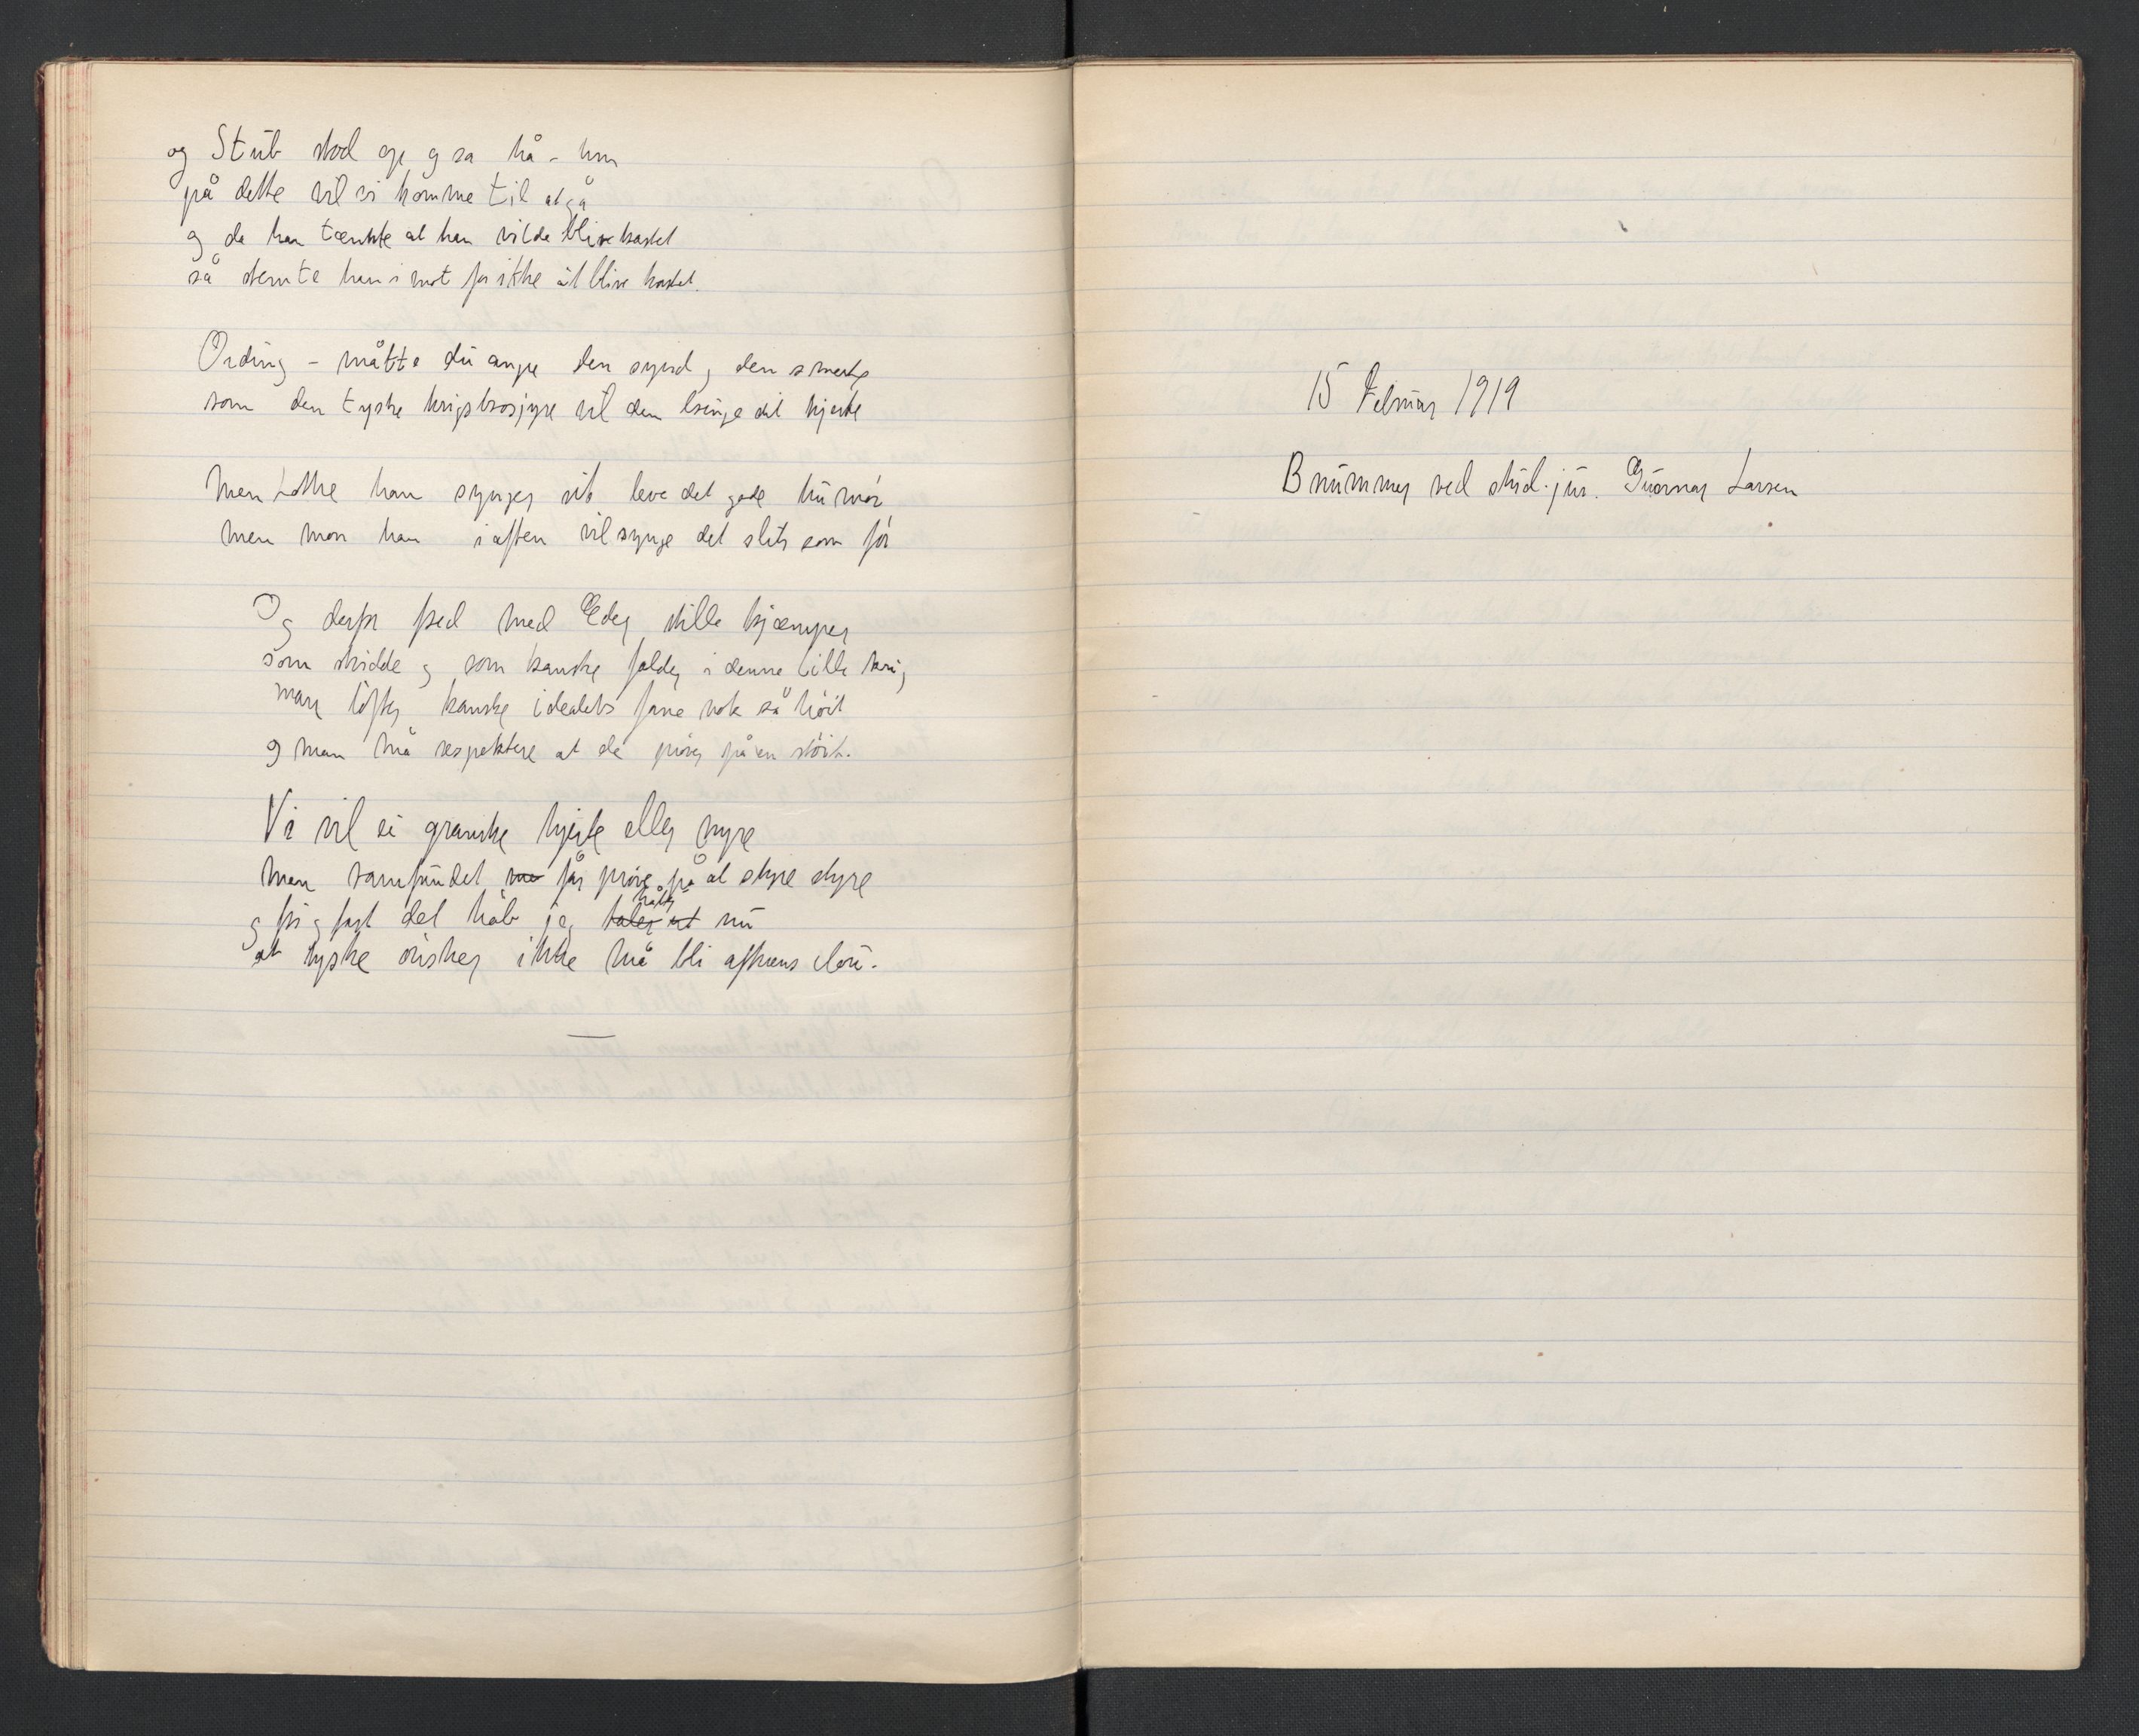 og Stub stod op og sa hå - hm
på dette vil vi komme til at gå
og da han tænkte at han vilde blive kastet
så stemte han imot for ikke at blive kastet.
Ording - måtte du angre den synd og den smerte
som den tyske krigsbrosjyre vil dem bringe dit hjerte
Men Lothe han synger vit leve det gode humør
men mon han i aften vil synge det slik som før
Og derfor fred med Eder stille kjæmper
som stridde og som kanske falder i denne lille krig
man løfter kanske idealets fane nok så høit
og man må respektere at de prøver på en støit.
Vi vil ei granske hjerte eller nyre
men samfundet får prøve på at styre styre
og fri og fast det håb jeg håber nu
at tyske ønsker ikke må bli aftnens clou.
15 Februar 1919
Brummer ved stud. jur. Gunnar Larsen